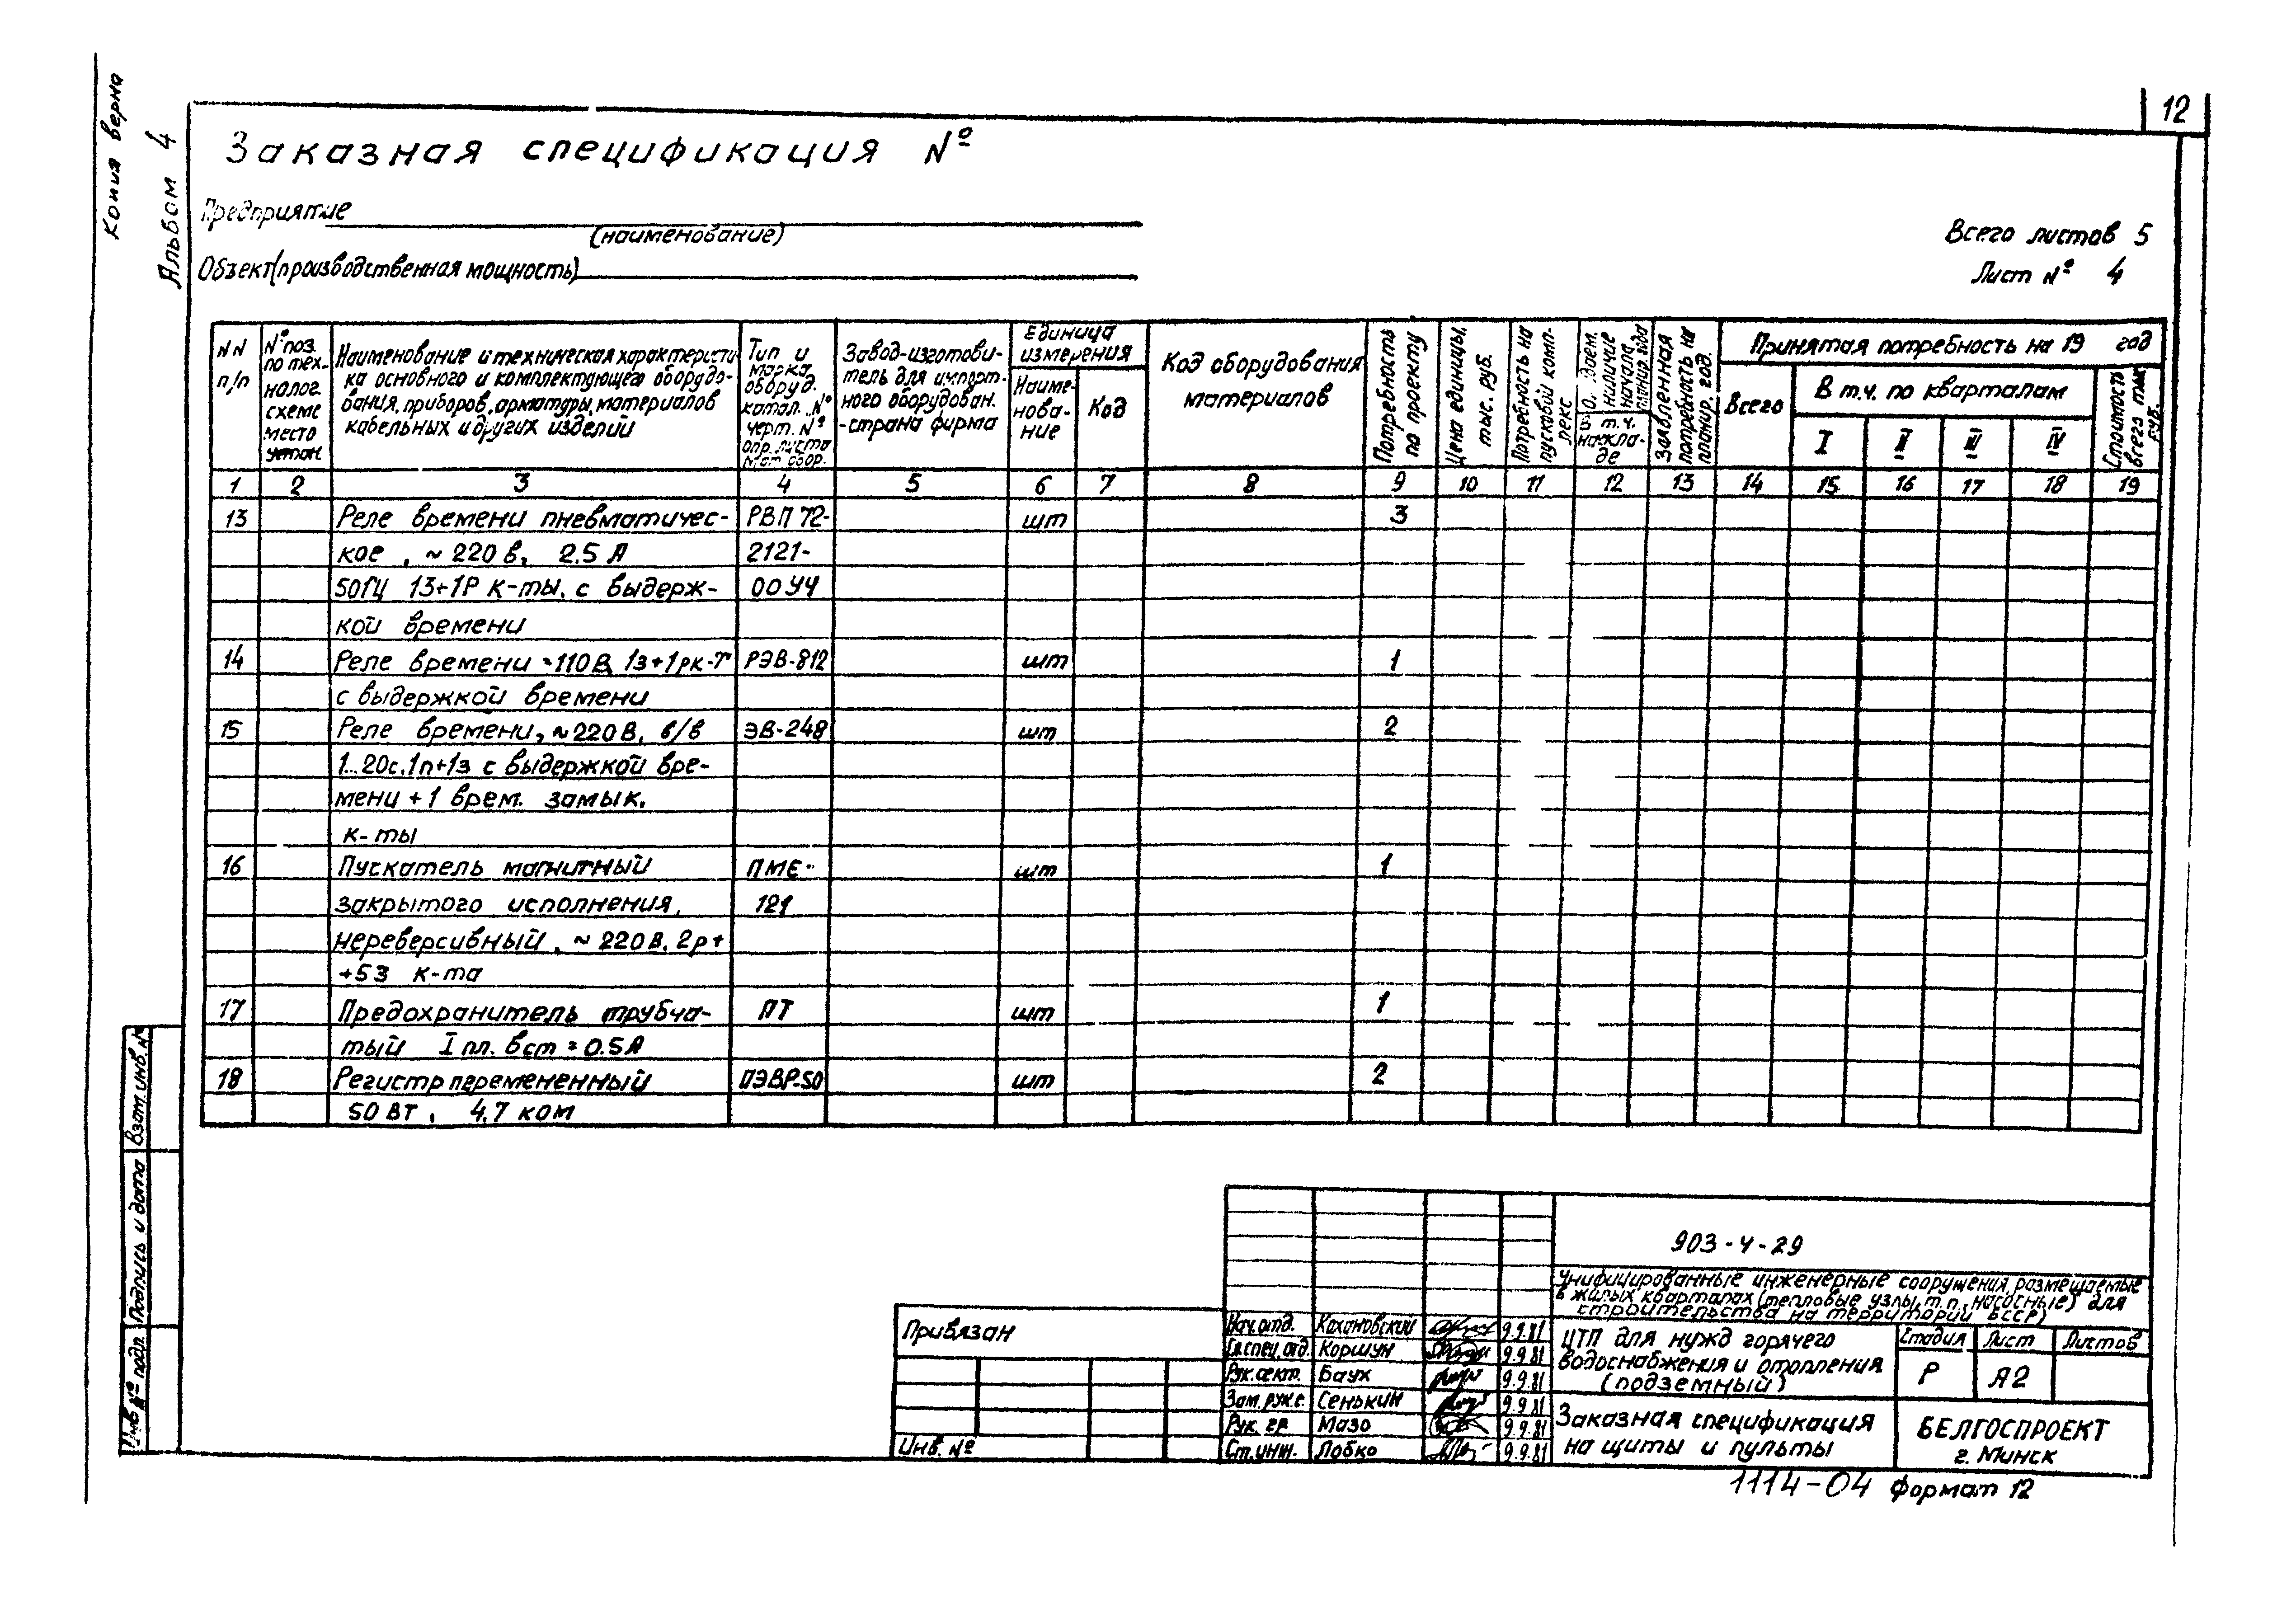 12
Копия верна
Альбом 4
Заказная спецификация №
Предприятие
(наименование)
Объект (производственная мощность)
Всего листов 5
Лист № 4
NN п/п
№ поз. по тех-нолог. схеме место устан.
Наименование и техническая характеристи-
ка основного и комплектующего оборудо-
вания, приборов, арматуры, материалов
кабельных и других изделий
Тип и марка оборуд. катал. № черт. № опр. листа
Завод-изготови-
тель для импорт-
ного оборудован.
-страна фирма
Единица измерения
Наиме-нова-ние
Код
Код оборудования материалов
Потребность по проекту
Цена единицы, тыс. руб.
Потребность на пусковой комп-лекс
в т.ч. на скла-де
Заявленная потребность на планир. год.
Принятая потребность на 19 год
Всего
В т.ч. по кварталам
I II III IV
Стоимость всего тыс. руб.
1 2 3 4 5 6 7 8 9 10 11 12 13 14 15 16 17 18 19
13 Реле времени пневматичес- РВП 72- шт 3
кое , ~ 220 в, 2.5 А 2121-
50Гц 13+1Р к-ты, с выдерж- 00У4
кой времени
14 Реле времени =110В, 1з+1рк-т РЭВ-812 шт 1
с выдержкой времени
15 Реле времени, ~220В, в/в ЭВ-248 шт 2
1...20с, 1п+1з с выдержкой вре-
мени + 1 врем. замык.
к-ты
16 Пускатель магнитный ПМЕ- шт 1
закрытого исполнения, 121
нереверсивный, ~ 220В, 2р+
+5З к-та
17 Предохранитель трубча- ПТ шт 1
тый I пл. вст = 0.5А
18 Регистр перемененный ПЭВР-50 шт 2
50 Вт, 4.7 ком
Взам. инв. №
Подпись и дата
Инв № подп.
Привязан
Инв. №
903-4-29
Унифицированные инженерные сооружения, размещаемые
в жилых кварталах (тепловые узлы, т.п., насосные) для
строительства на территории БССР)
Нач. отд. Кохановский 9.9.81
Гл. спец. отд. Коршун 9.9.81
Рук. сект. Баух 9.9.81
Зам. рук. с. Сенькин 9.9.81
Рук. гр Мазо 9.9.81
Ст. инж. Лобко 9.9.81
ЦТП для нужд горячего
водоснабжения и отопления
(подземный)
Стадия Лист Листов
Р А2
Заказная спецификация
на щиты и пульты
БЕЛГОСПРОЕКТ
г. Минск
1114-04 Формат 12